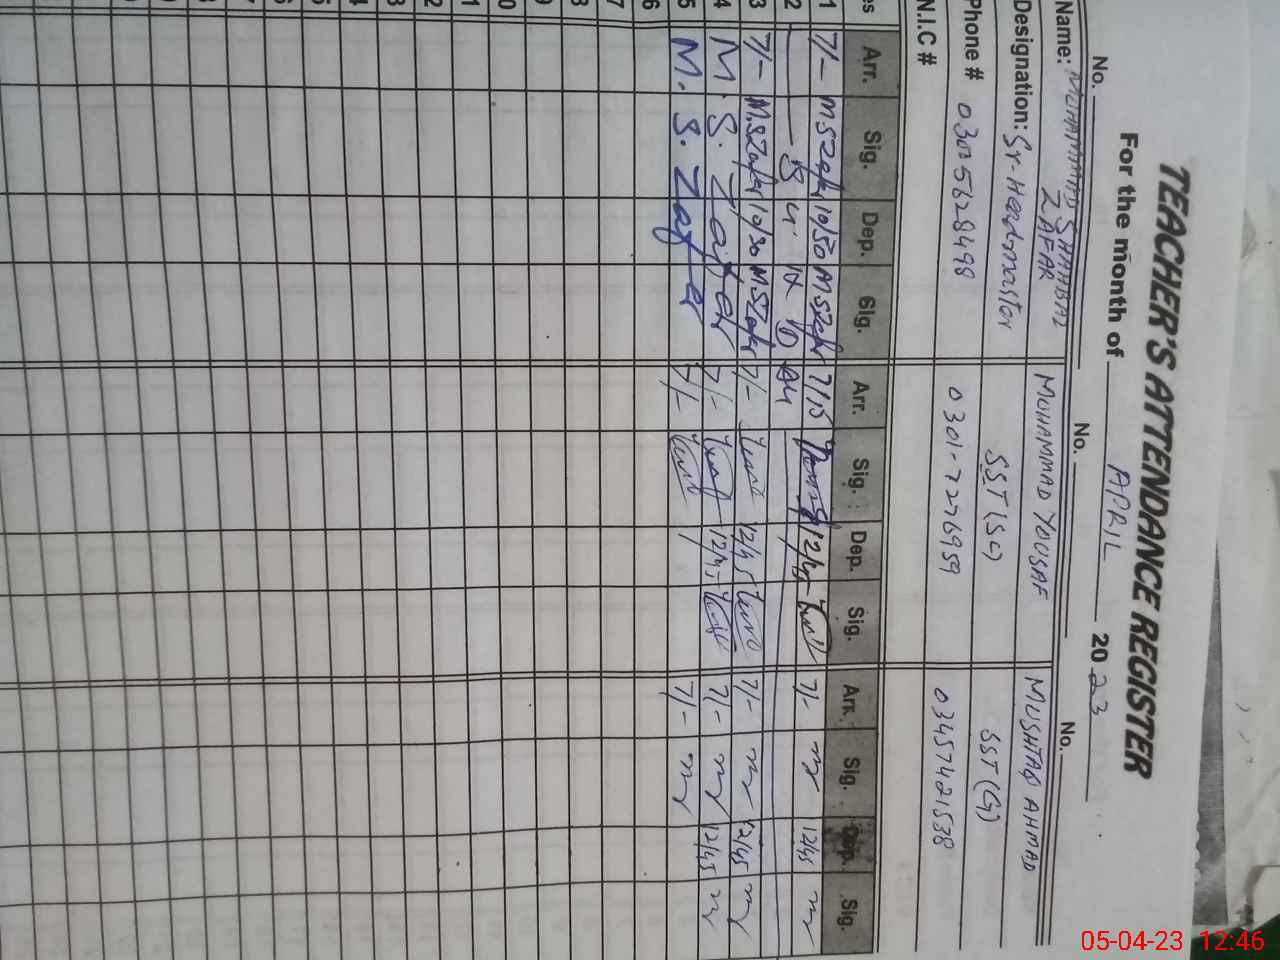 TEACHER'S ATTENDANCE REGISTER
For the month of APRIL 2023
No. No. No.
Name: MUHAMMAD SHAHBAZ ZAFAR MUHAMMAD YOUSAF MUSHTAQ AHMAD
Designation: Sr. Headmaster SST(SC) SST(G)
Phone # 03005628498 0301-7276959 03457421538
N.I.C #
es Arr. Sig. Dep. Sig. Arr. Sig. Dep. Sig. Arr. Sig. Dep. Sig.
1 7/- M S Zafar 10/50 M S Zafar 7/15 12/45 7/- 12/45
2
3 7/- M.S Zafar 10/30 M.S Zafar 7/- 12/45 7/- 12/45
4 M. S. Zafar 7/- 12/45 7/- 12/45
5 M. S. Zafar 7/- 7/-
6
7
8
9
0
1
2
3
4
5
6
7
8
05-04-23 12:46